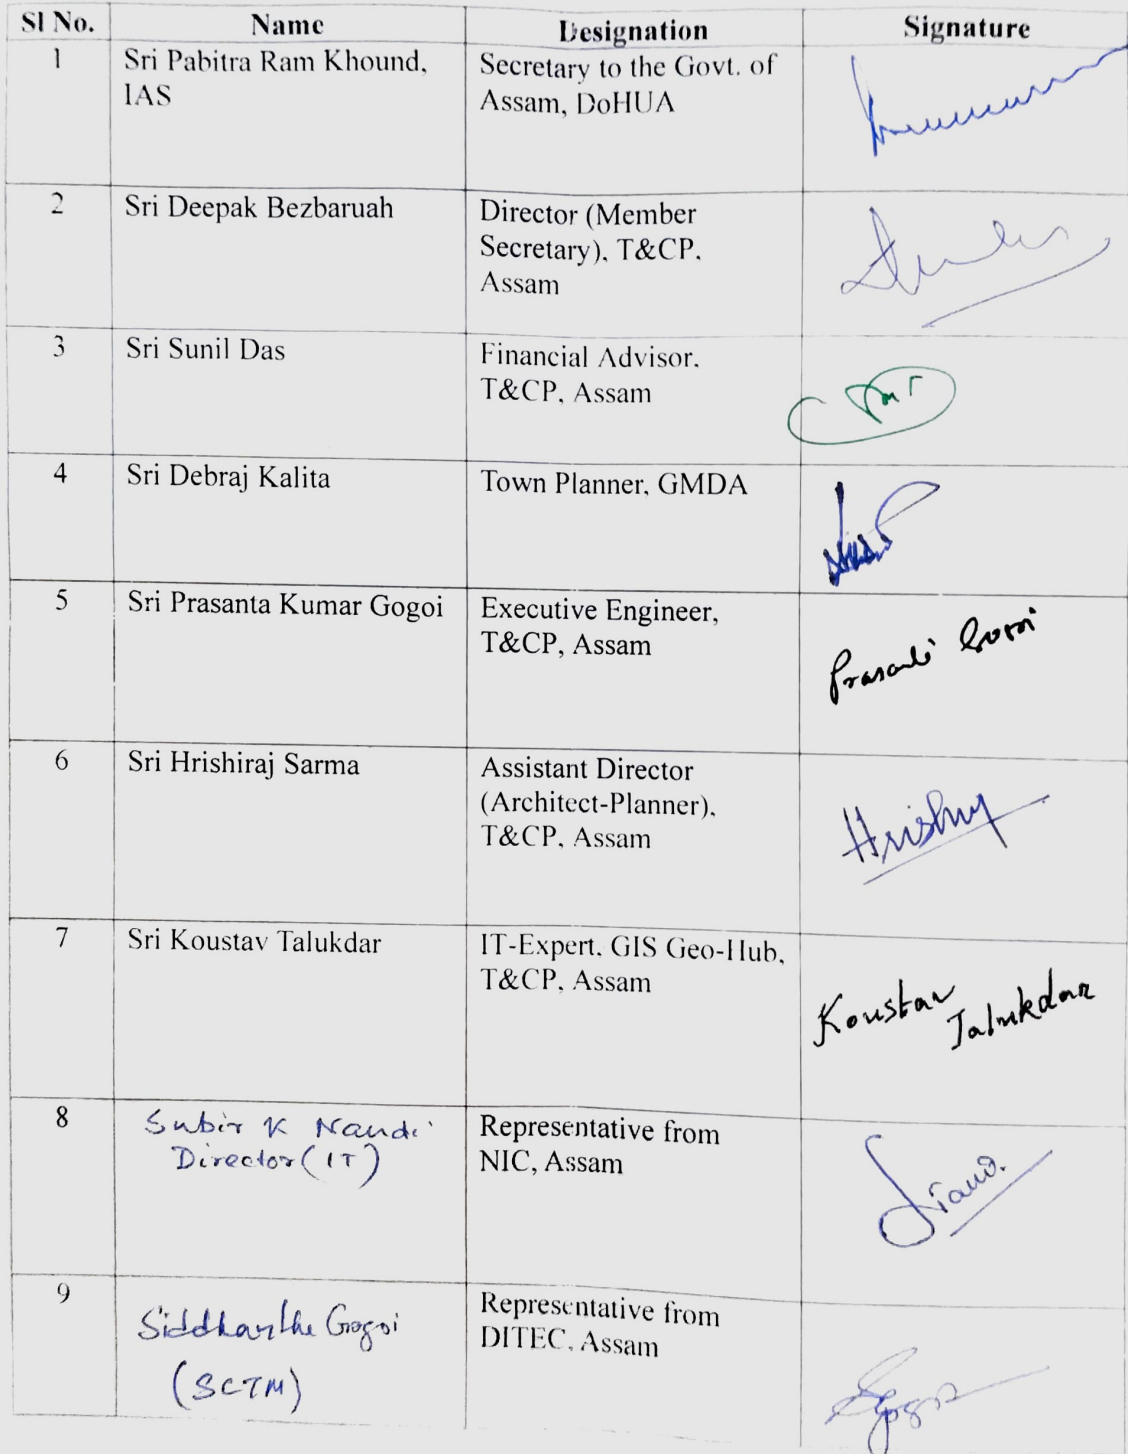 Sl No. Name Designation Signature
1 Sri Pabitra Ram Khound, Secretary to the Govt. of
IAS Assam, DoHUA
2 Sri Deepak Bezbaruah Director (Member
Secretary), T&CP,
Assam
3 Sri Sunil Das Financial Advisor,
T&CP, Assam
4 Sri Debraj Kalita Town Planner, GMDA
5 Sri Prasanta Kumar Gogoi Executive Engineer,
T&CP, Assam
6 Sri Hrishiraj Sarma Assistant Director
(Architect-Planner),
T&CP, Assam
7 Sri Koustav Talukdar IT-Expert, GIS Geo-Hub,
T&CP, Assam
Koustav
Talukdar
8 Subir K Nandi Representative from
Director (IT) NIC, Assam
9 Siddhartha Gogoi Representative from
(SCTM) DITEC, Assam